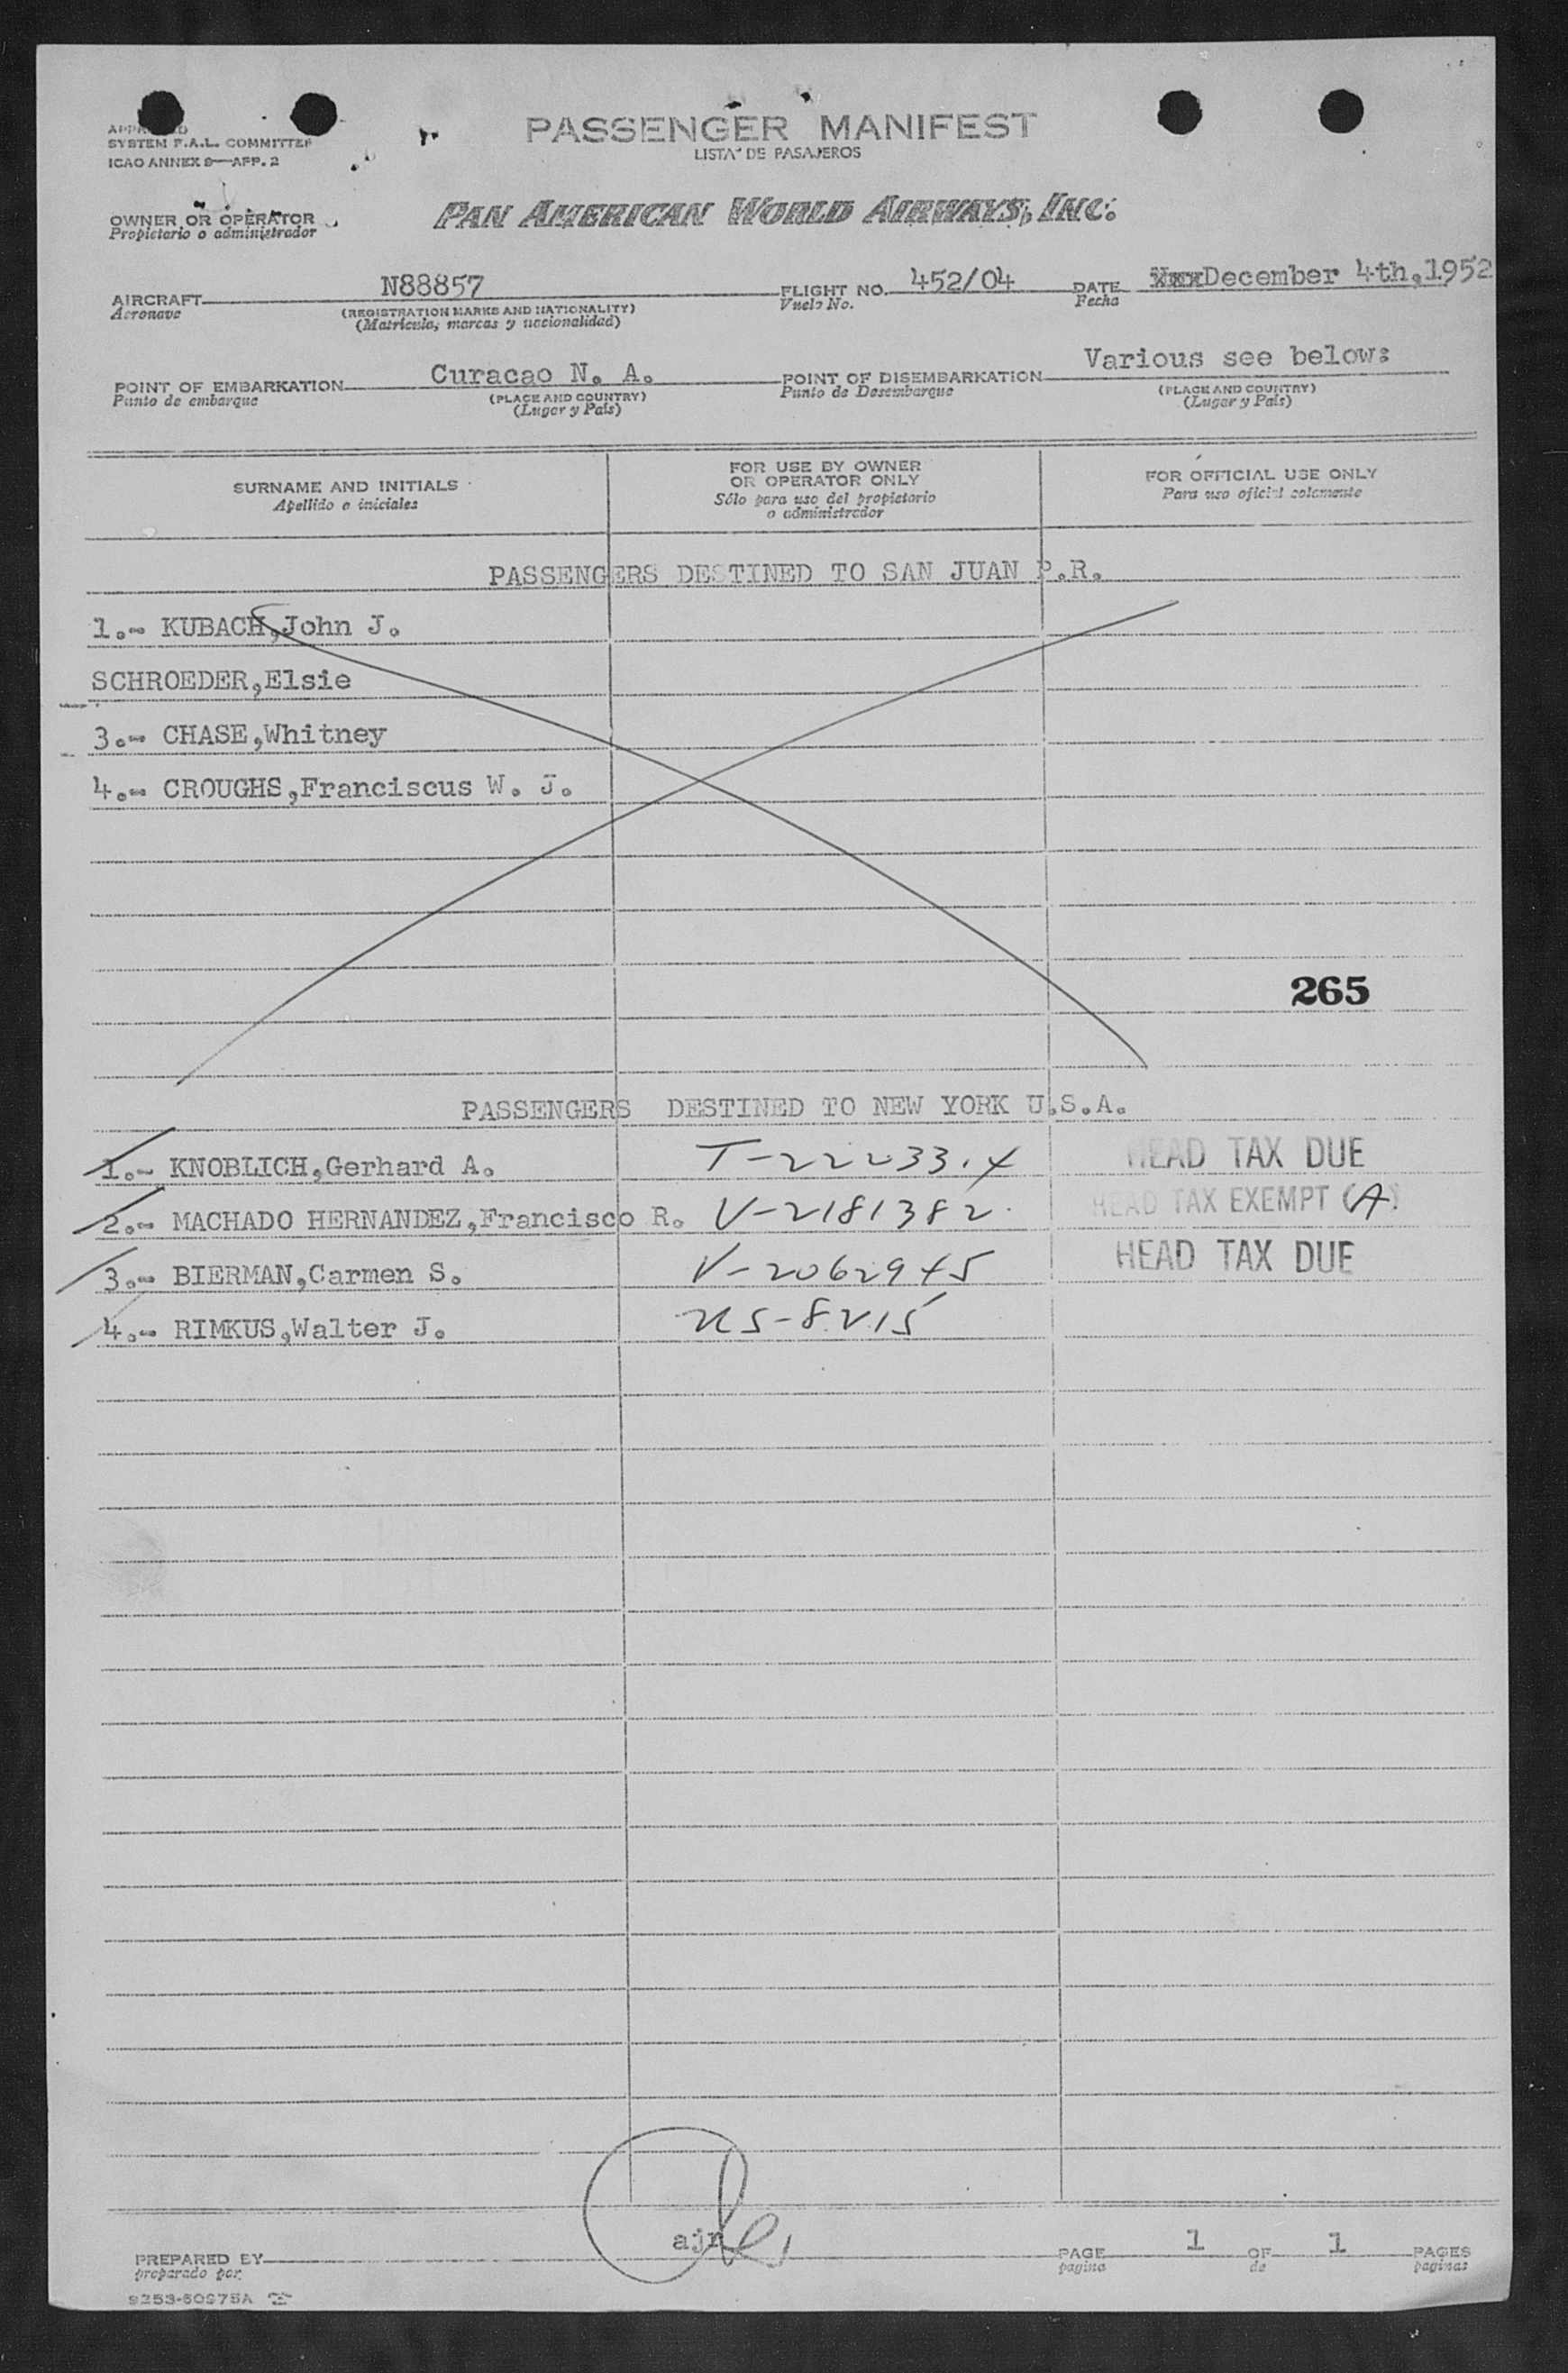 APPROVED
SYSTEM F.A.L. COMMITTEE
ICAO ANNEX 9—APP. 2
PASSENGER MANIFEST
LISTA DE PASAJEROS
OWNER OR OPERATOR
Propietario o administrador
PAN AMERICAN WORLD AIRWAYS, INC.
AIRCRAFT N88857 FLIGHT NO. 452/04 DATE xxxDecember 4th,1952
Aeronave (REGISTRATION MARKS AND NATIONALITY) Vuelo No. Fecha
(Matrícula, marcas y nacionalidad)
POINT OF EMBARKATION Curacao N. A. POINT OF DISEMBARKATION Various see below:
Punto de embarque (PLACE AND COUNTRY) Punto de Desembarque (PLACE AND COUNTRY)
(Lugar y País) (Lugar y País)
SURNAME AND INITIALS
Apellido e iniciales
FOR USE BY OWNER
OR OPERATOR ONLY
Sólo para uso del propietario
o administrador
FOR OFFICIAL USE ONLY
Para uso oficial solamente
PASSENGERS DESTINED TO SAN JUAN P.R.
1.- KUBACH,John J.
SCHROEDER,Elsie
3.- CHASE,Whitney
4.- CROUGHS,Franciscus W. J.
265
PASSENGERS DESTINED TO NEW YORK U.S.A.
1.- KNOBLICH,Gerhard A. T-22233.4 HEAD TAX DUE
2.- MACHADO HERNANDEZ,Francisco R. V-2181382. HEAD TAX EXEMPT (A)
3.- BIERMAN,Carmen S. V-2062945 HEAD TAX DUE
4.- RIMKUS,Walter J. US-8215
PREPARED BY ajr PAGE 1 OF 1 PAGES
preparado por pagina de paginas
9253-60975A